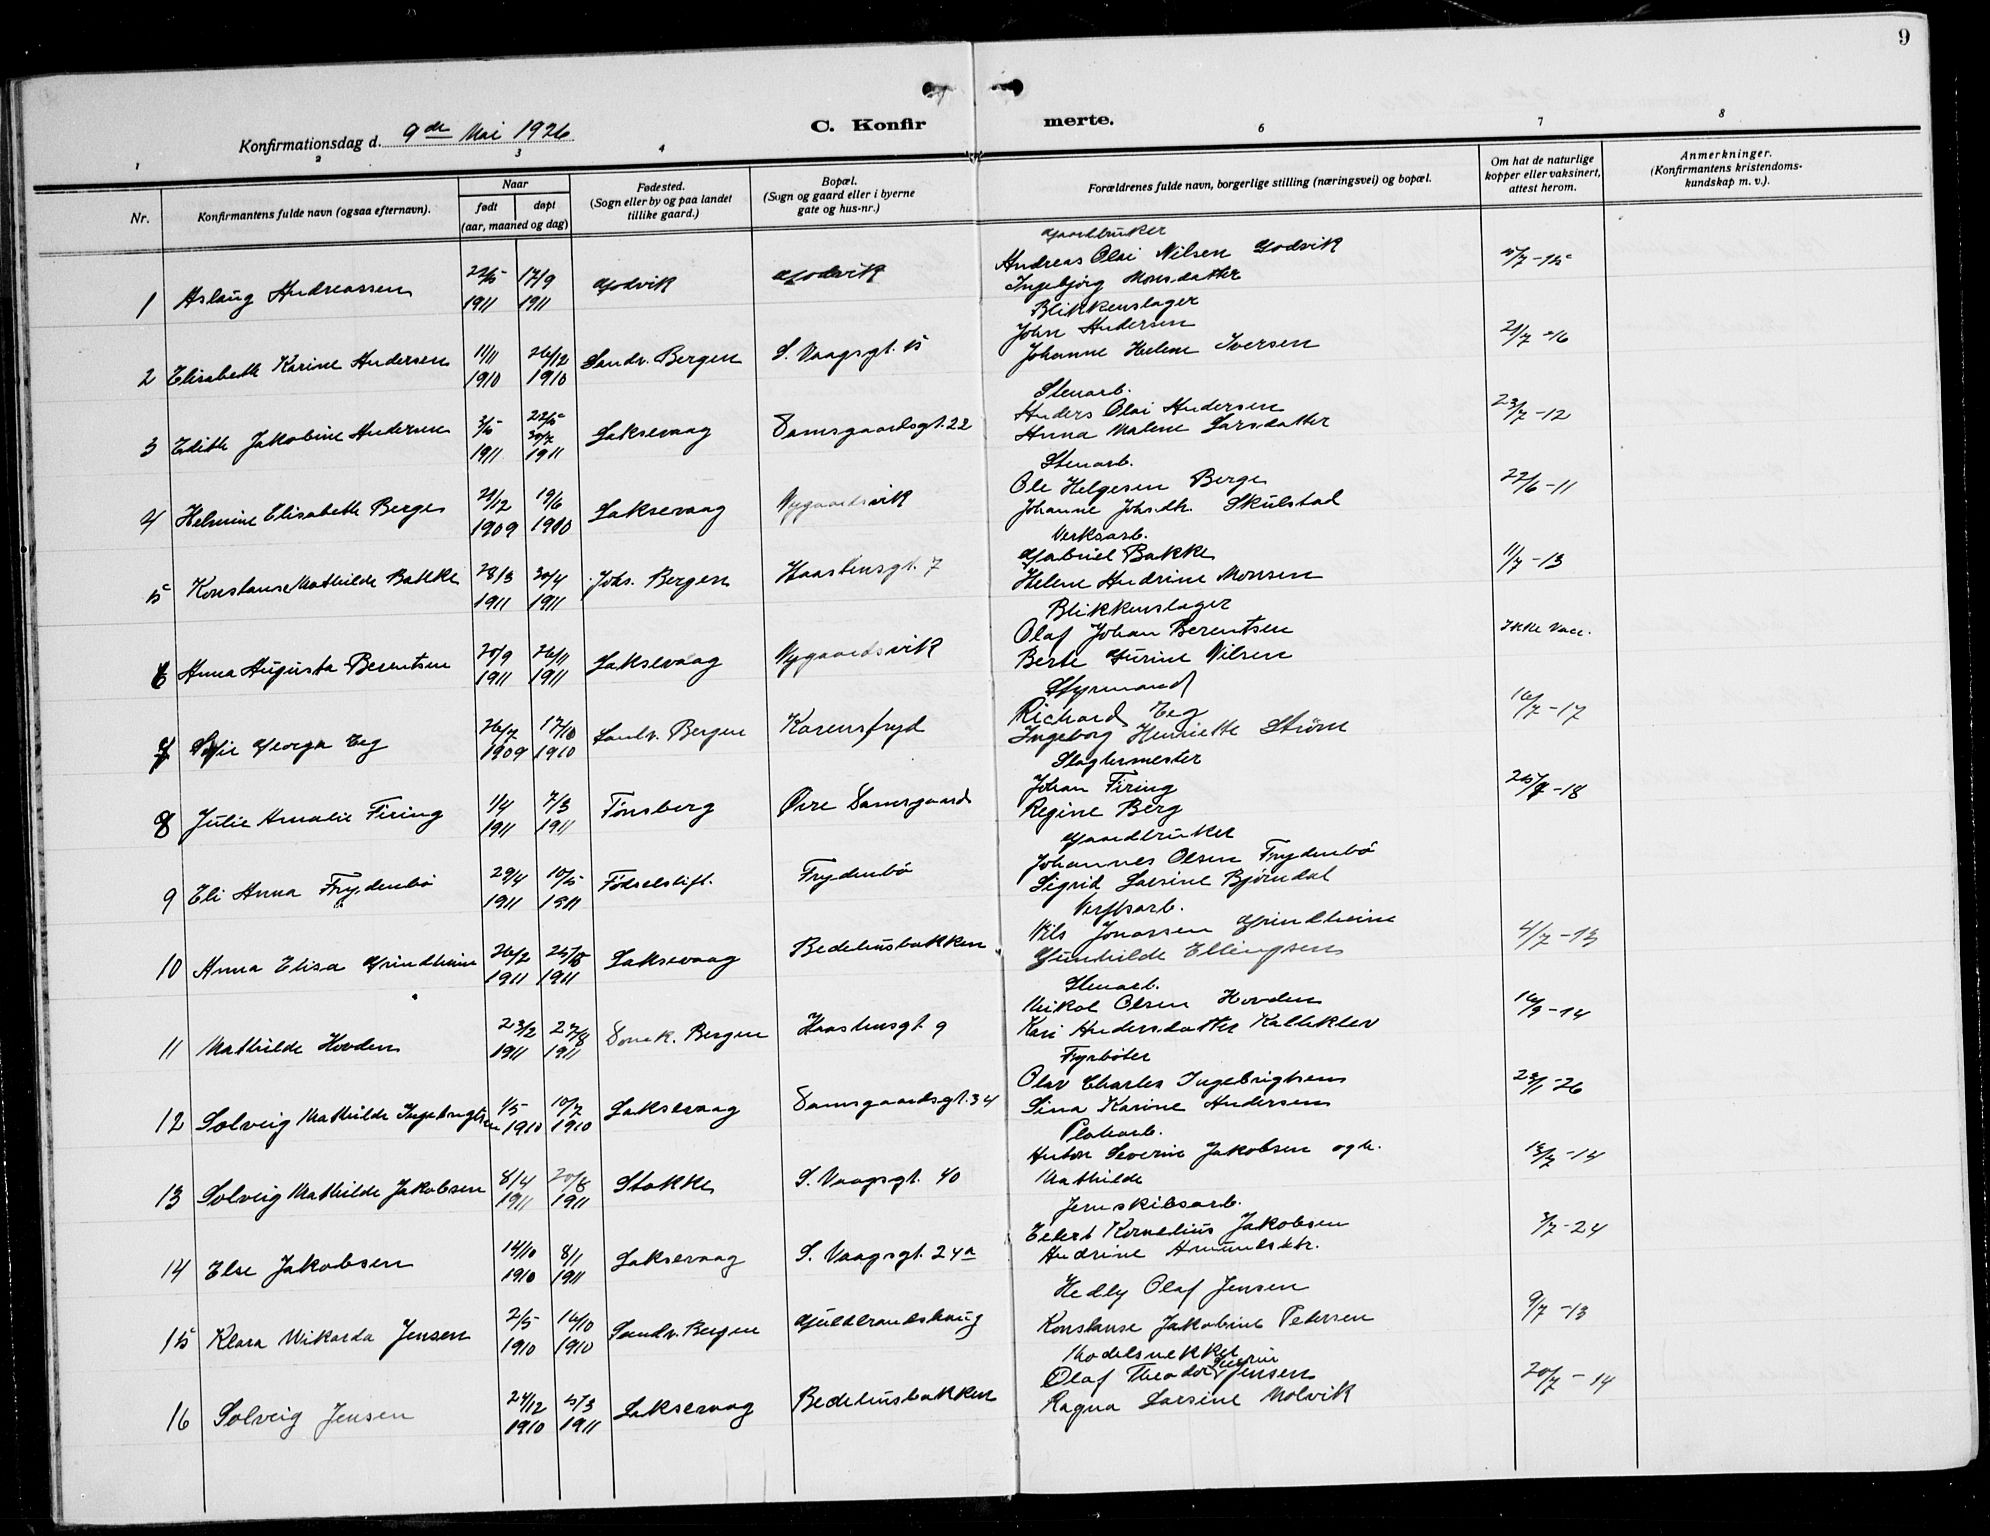 9
C. Konfirmerte.
Konfirmationsdag d. 9de Mai 1926
1 2 3 4 6 7 8
Nr.
Konfirmantens fulde navn (ogsaa efternavn).
Naar
født døpt
(aar, maaned og dag)
Fødested.
(Sogn eller by og paa landet
tillike gaard.)
Bopæl.
(Sogn og gaard eller i byerne
gate og hus-nr.)
Forældrenes fulde navn, borgerlige stilling (næringsvei) og bopæl.
Om hat de naturlige
kopper eller vaksinert,
attest herom.
Anmerkninger.
(Konfirmantens kristendoms-
kundskap m. v.).
Gaardbruker
1 Aslaug Andreassen 22/5 17/9 Godvik Godvik Andreas Olai Nilsen Godvik 5/7-15
1911 1911 Ingebjörg Monsdatter
Blikkenslager
2 Elisabeth Karine Andersen 11/11 26/12 Sandv. Bergen S. Vaagsgt. 15 John Andersen 21/7-16
1910 1910 Johanne Helene Iversen
Stenarb.
3 Edith Jakobine Andersen 3/5 22/5 30/7 Laksevaag Damsgaardsgt. 22 Anders Olai Andersen 23/7-12
1911 1911 Anna Malene Larsdatter
Stenarb.
4 Helmine Elisabeth Berge 21/12 19/6 Laksevaag Nygaardsvik Ole Helgesen Berge 22/6-11
1909 1910 Johanne Johsdtr. Skulstad
Verksarb.
5 Konstanse Mathilde Bakke 28/3 30/4 Johs. Bergen Haasteinsgt. 7 Gabriel Bakke 11/7-13
1911 1911 Helene Andrine Monsen
Blikkenslager
6 Anna Augusta Berentsen 20/9 26/11 Laksevaag Nygaardsvik Olaf Johan Berentsen Ikke vacc.
1911 1911 Berte Gurine Nilsen
Styrmand
7 Georga Eeg 26/7 17/10 Sandv. Bergen Karensfryd Richard Eeg 16/7-17
1909 1910 Ingeborg Henriette Ström
Slagtermester
8 Julie Amalie Firing 1/4 7/3 Tönsberg Övre Damsgaard Johan Firing 25/7-18
1911 1911 Regine Berg
Gaardbruker
9 Eli Anna Frydenbö 29/4 10/5 Födselstift. Frydenbö Johannes Olsen Frydenbö
1911 1911 Sigrid Larsine Björndal
Verftsarb.
10 Anna Elisa Grindheim 26/2 25/5 Laksevaag Bedehusbakken Nils Jonassen Grindheim 4/7-13
1911 1911 Gunhilde Ellingsen
Stenarb.
11 Mathilde Hovden 23/2 27/8 Domk. Bergen Haasteinsgt. 9 Nikol Olsen Hovden 16/9-14
1911 1911 Kari Andersdatter Kalleklev
Fyrböter
12 Solveig Mathilde Ingebrigtsen 1/5 10/7 Laksevaag Damsgaardsgt. 34 Olav Charles Ingebrigtsen 23/1-26
1910 1910 Sina Karine Andersen
Platearb.
13 Solveig Mathilde Jakobsen 8/4 20/8 Stokke S. Vaagsgt. 40 Anton Severin Jakobsen og h. 13/7-14
1911 1911 Mathilde
Jernskibsarb.
14 Else Jakobsen 14/10 8/1 Laksevaag S. Vaagsgt. 24a Eilert Kornelius Jakobsen 3/7-24
1910 1911 Andrine Amundsdtr.
15 Klara Wikarda Jensen 2/5 16/10 Sandv. Bergen Guldbrandshaug Hedly Olaf Jensen 9/7-13
1910 1910 Konstanse Jakobine Petersen
Modelsnekker
16 Solveig Jensen 24/12 5/3 Laksevaag Bedehusbakken Olaf Theodor Severin Jensen 20/7-14
1910 1911 Ragna Larsine Molvik